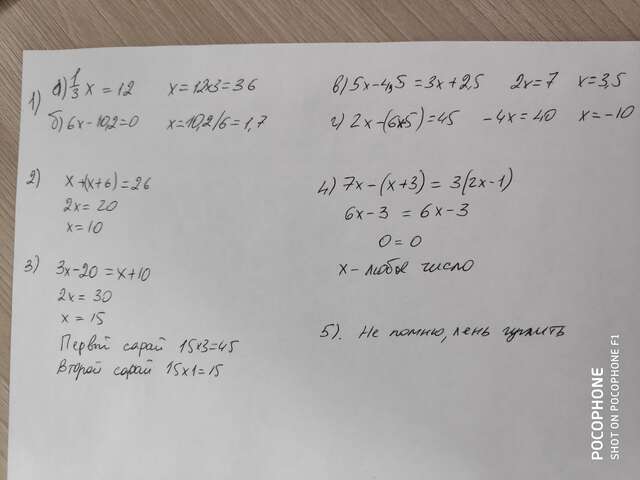 1) а) 1/3 x = 12 x = 12×3 = 36
б) 6x - 10,2 = 0 x = 10,2/6 = 1,7
в) 5x - 4,5 = 3x + 2,5 2x = 7 x = 3,5
г) 2x - (6x-5) = 45 -4x = 40 x = -10
2) x + (x+6) = 26
2x = 20
x = 10
3) 3x - 20 = x + 10
2x = 30
x = 15
Первый сарай 15×3=45
Второй сарай 15×1=15
4) 7x - (x+3) = 3(2x-1)
6x - 3 = 6x - 3
0 = 0
x - любое число
5). Не помню, лень гуглить
POCOPHONE
SHOT ON POCOPHONE F1